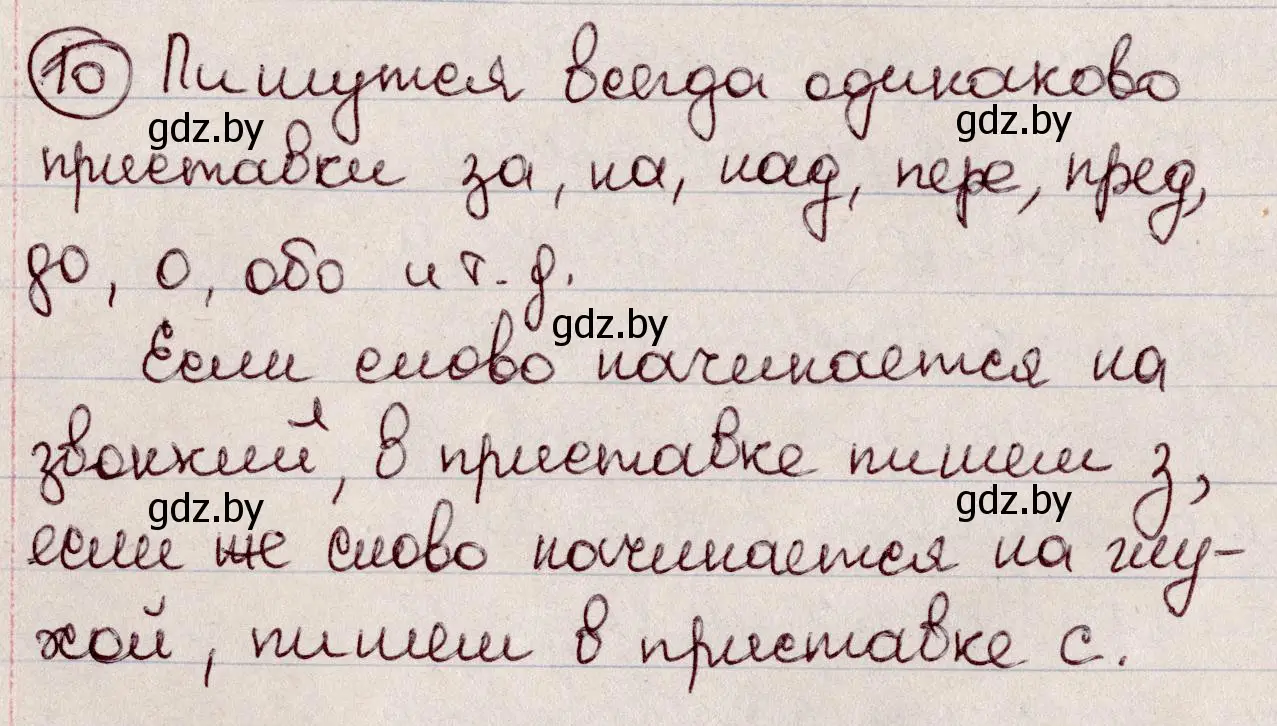 10 Пишутся всегда одинаково
gdz.by gdz.by
приставки за, на, над, пере, пред,
до, о, обо и т. д.
gdz.by
Если слово начинается на
звонкий, в приставке пишем з,
gdz.by gdz.by
если же слово начинается на глу-
хой, пишем в приставке с.